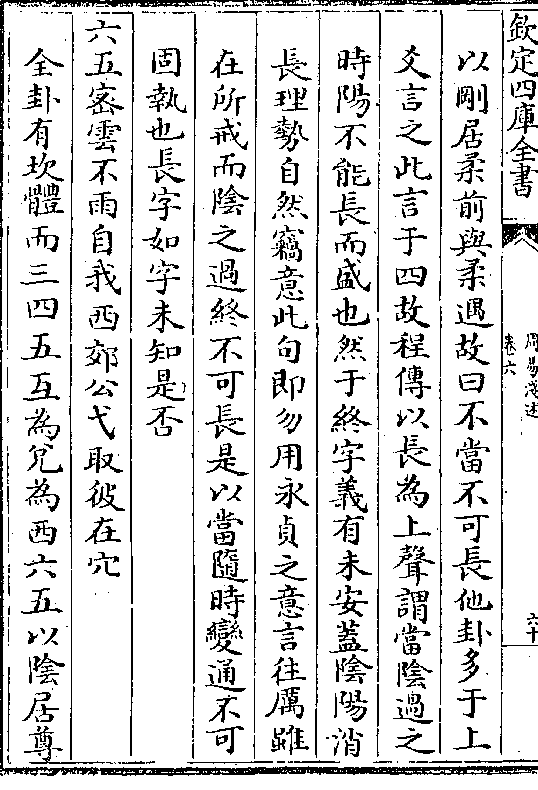 欽定四庫全書
周易淺述
卷六
六十
以剛居柔前與柔遇故曰不當不可長他卦多于上
爻言之此言于四故程傳以長為上聲謂當陰過之
時陽不能長而盛也然于終字義有未安葢陰陽消
長理勢自然竊意此句即勿用永貞之意言往厲雖
在所戒而陰之過終不可長是以當隨時變通不可
固執也長字如字未知是否
六五密雲不雨自我西郊公弋取彼在穴
全卦有坎體而三四五互為兌為西六五以陰居尊